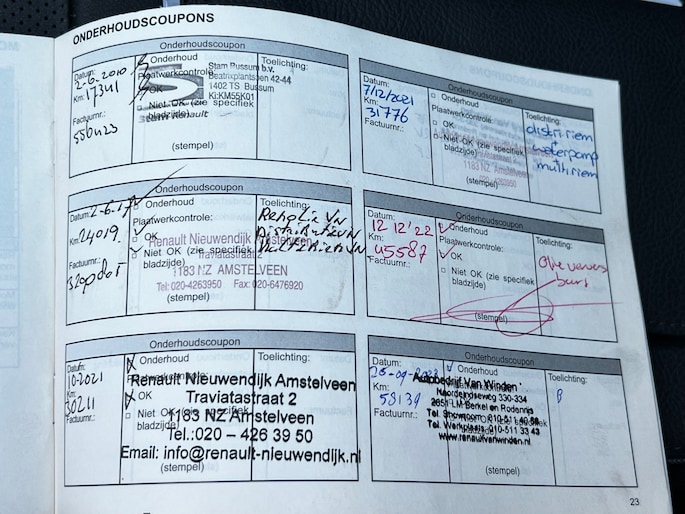 ONDERHOUDSCOUPONS
Onderhoudscoupon
Datum:
2-6-2010
Km:
17341
Factuurnr.:
Onderhoud
Plaatwerkcontrole:
OK
Niet OK (zie specifiek
bladzijde)
(stempel)
Stam Bussum b.v.
Beatrixplantsoen 42-44
1402 TS Bussum
Ki:KM55K01
Renault
Toelichting:
Onderhoudscoupon
Datum:
7/12/2021
Km:
31776
Factuurnr.:
Onderhoud
Plaatwerkcontrole:
OK
Niet OK (zie specifiek
bladzijde)
1183 NZ AMSTELVEEN
(stempel)
Toelichting:
distri riem
+
waterpomp
multi riem
Onderhoudscoupon
Datum: 2-6-17
Km:
24019
Factuurnr.:
Onderhoud
Plaatwerkcontrole:
OK
Niet OK (zie specifiek
bladzijde)
Renault Nieuwendijk Amstelveen
Traviatastraat 2
1183 NZ AMSTELVEEN
Tel: 020-4263950 Fax: 020-6476920
(stempel)
Toelichting:
Onderhoudscoupon
Datum:
12 12 '22
Km:
45587
Factuurnr.:
Onderhoud
Plaatwerkcontrole:
OK
Niet OK (zie specifiek
bladzijde)
(stempel)
Toelichting:
Olie ververs
beurt
Onderhoudscoupon
Datum:
10-2021
Km:
30211
Factuurnr.:
Onderhoud
Plaatwerkcontrole:
OK
Niet OK (zie specifiek
bladzijde)
Renault Nieuwendijk Amstelveen
Traviatastraat 2
1183 NZ Amstelveen
Tel.:020 – 426 39 50
Email: info@renault-nieuwendijk.nl
(stempel)
Toelichting:
Onderhoudscoupon
Datum:
Km:
58139
Factuurnr.:
Onderhoud
Autobedrijf Van Winden
Noordeindseweg 330-334
2651 LM Berkel en Rodenrijs
Tel. Showroom 010-511
Tel. Werkplaats 010-511 33 43
www.renaultvanwinden.nl
(stempel)
Toelichting:
23